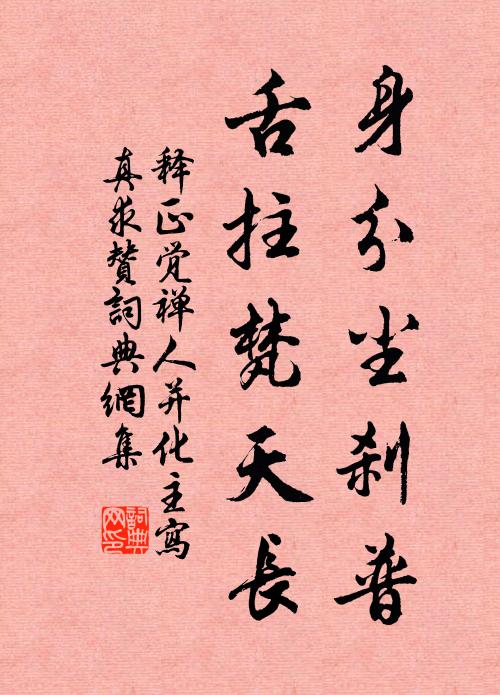 身分尘刹普
舌拄梵天長
释正觉禅人并化主寫
真求賛詞典網集
詞典网印